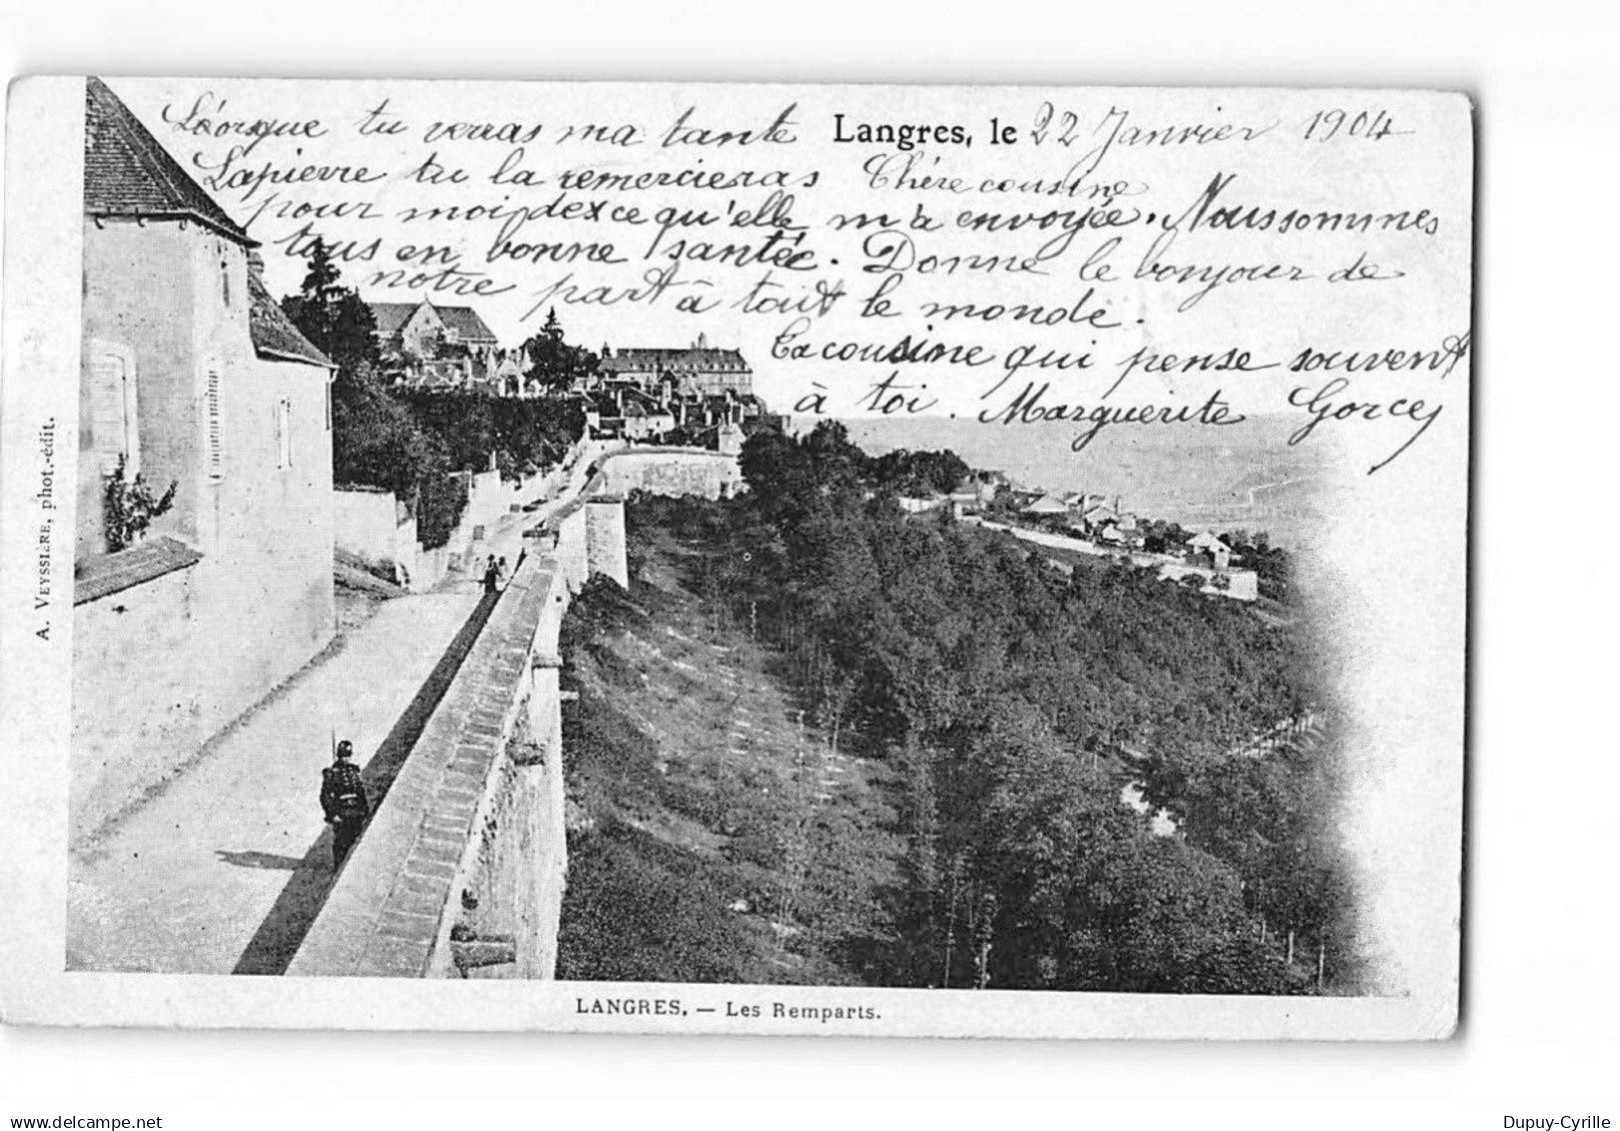 Langres, le 22 Janvier 1904
Chère cousine
Léorsque tu verras ma tante
Lapierre tu la remercieras
pour moi dexce qu'elle m'a envoyée. Nous sommes
tous en bonne santée. Donne le bonjour de
notre part à tout le monde.
Ta cousine qui pense souvent
à toi. Marguerite Gorcey
A. VEYSSIÈRE, phot.-édit.
LANGRES. — Les Remparts.
www.delcampe.net
Dupuy-Cyrille